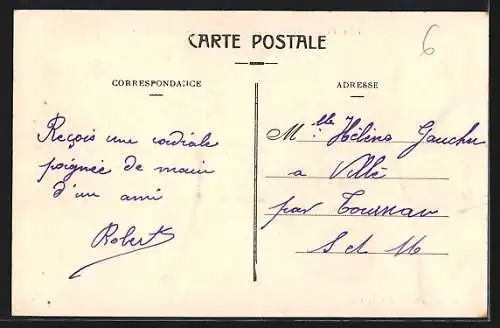 CARTE POSTALE
6
CORRESPONDANCE
Reçois une cordiale
poignée de main
d'un ami
Robert
ADRESSE
Mlle Hélène
a Villé
par Tournan
S et M